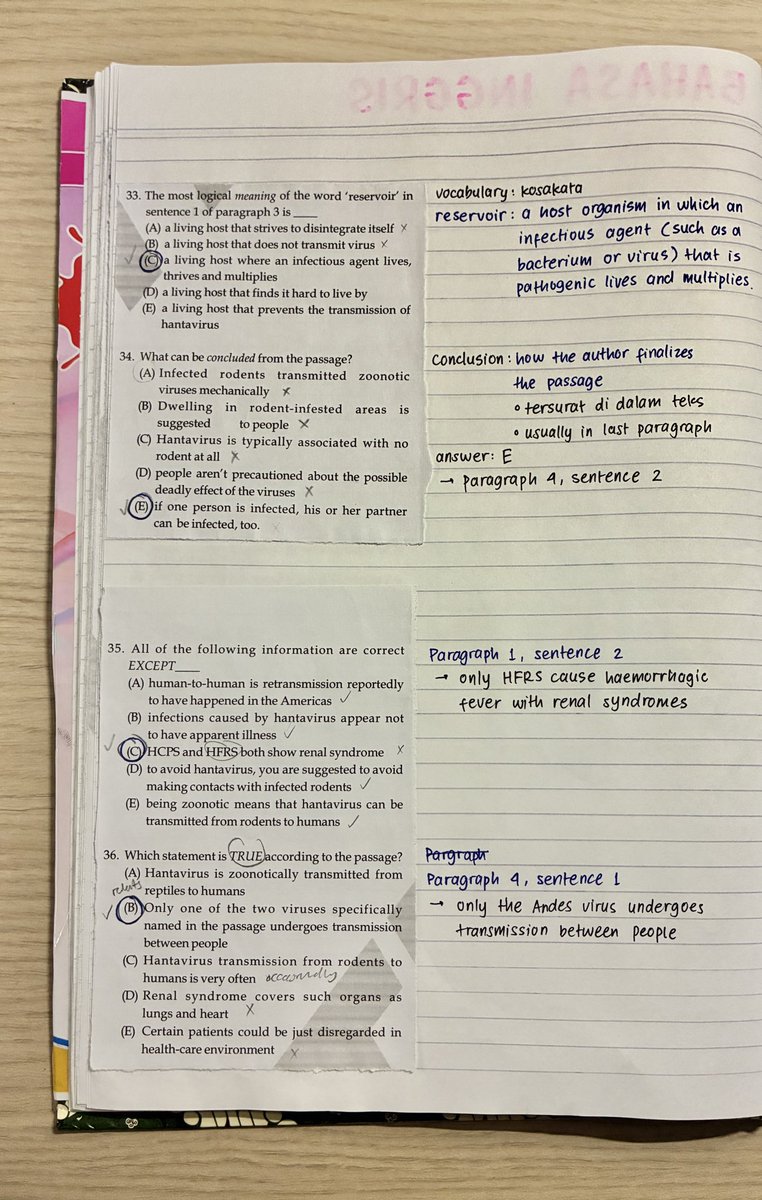 BAHASA INGGRIS
33. The most logical meaning of the word 'reservoir' in
sentence 1 of paragraph 3 is ____
(A) a living host that strives to disintegrate itself ×
(B) a living host that does not transmit virus ×
✓ (C) a living host where an infectious agent lives,
thrives and multiplies
(D) a living host that finds it hard to live by
(E) a living host that prevents the transmission of
hantavirus
vocabulary : kosakata
reservoir : a host organism in which an
infectious agent (such as a
bacterium or virus) that is
pathogenic lives and multiplies.
34. What can be concluded from the passage?
(A) Infected rodents transmitted zoonotic
viruses mechanically ×
(B) Dwelling in rodent-infested areas is
suggested to people ×
(C) Hantavirus is typically associated with no
rodent at all ×
(D) people aren't precautioned about the possible
deadly effect of the viruses ×
✓ (E) if one person is infected, his or her partner
can be infected, too.
conclusion : how the author finalizes
the passage
• tersurat di dalam teks
• usually in last paragraph
answer : E
→ paragraph 4, sentence 2
35. All of the following information are correct
EXCEPT____
(A) human-to-human is retransmission reportedly
to have happened in the Americas ✓
(B) infections caused by hantavirus appear not
to have apparent illness ✓
✓ (C) HCPS and HFRS both show renal syndrome ×
(D) to avoid hantavirus, you are suggested to avoid
making contacts with infected rodents ✓
(E) being zoonotic means that hantavirus can be
transmitted from rodents to humans ✓
Paragraph 1, sentence 2
→ only HFRS cause haemorrhagic
fever with renal syndromes
36. Which statement is TRUE according to the passage?
(A) Hantavirus is zoonotically transmitted from
reptiles to humans
✓ (B) Only one of the two viruses specifically
named in the passage undergoes transmission
between people
(C) Hantavirus transmission from rodents to
humans is very often occasionally
(D) Renal syndrome covers such organs as
lungs and heart ×
(E) Certain patients could be just disregarded in
health-care environment ×
Pargraph
Paragraph 4, sentence 1
→ only the Andes virus undergoes
transmission between people